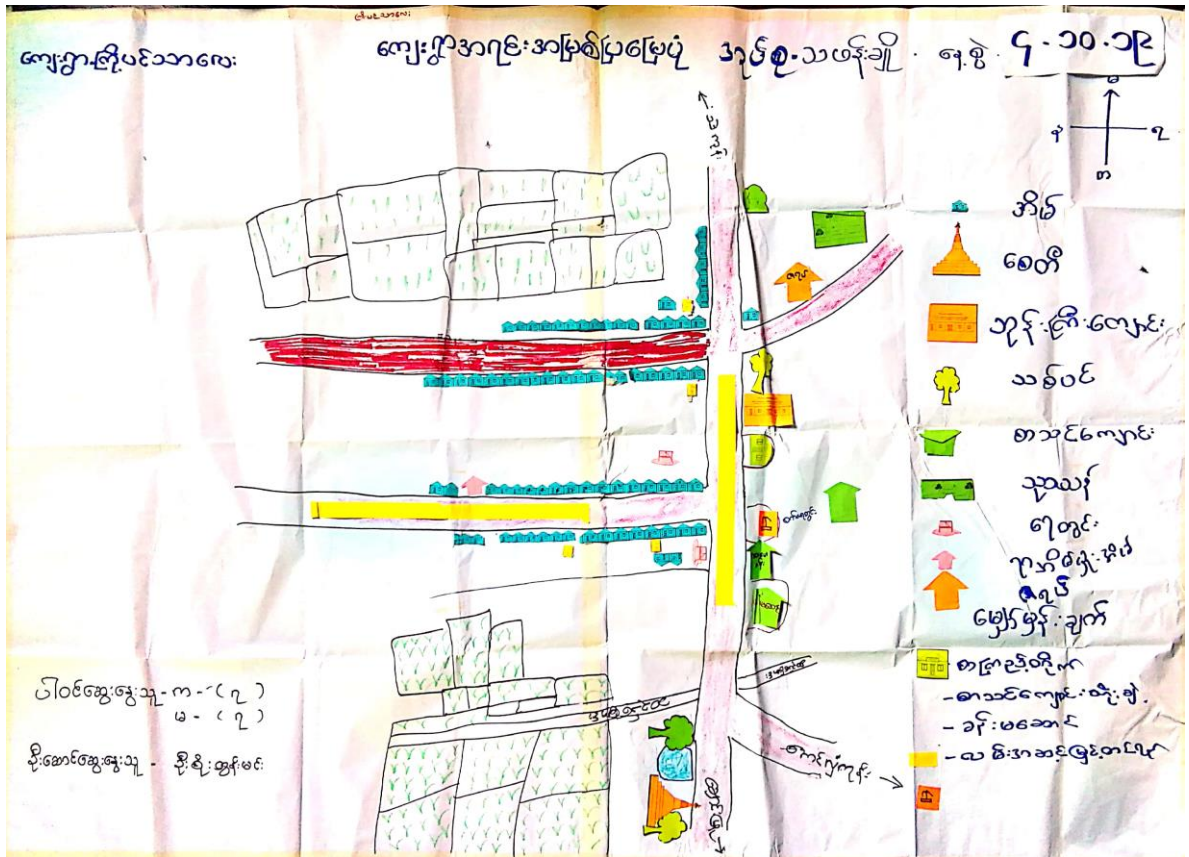 ကျေးရွာ-ကြို့ပင်သာလေး
ကျေးရွာအရင်းအမြစ်ပြမြေပုံ
အုပ်စု-သဖန်းချို
နေ့စွဲ - ၄-၁၀-၁၉
အိမ်
စေတီ
ဘုန်းကြီးကျောင်း
သစ်ပင်
စာသင်ကျောင်း
သုသာန်
ရေတွင်း
ဇရပ်
မျှော်မှန်းချက်
စာကြည့်တိုက်
-စာသင်ကျောင်းတိုးချဲ့
-ခန်းမဆောင်
-လမ်းအဆင့်မြှင့်တင်ရန်
ဇရပ်
ပါဝင်ဆွေးနွေးသူ - က - (၇)
မ - (၇)
ဦးဆောင်ဆွေးနွေးသူ - ဦးစိုးထွန်းမင်း